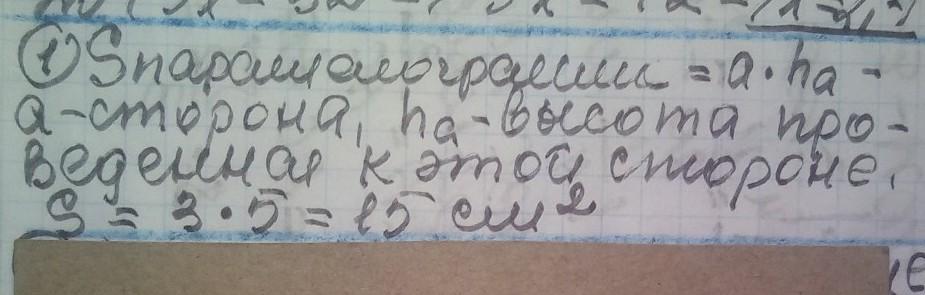 ① Sпараллелограмм = a · ha -
a-сторона, ha-высота про-
веденная к этой стороне.
S = 3·5 = 15 см²